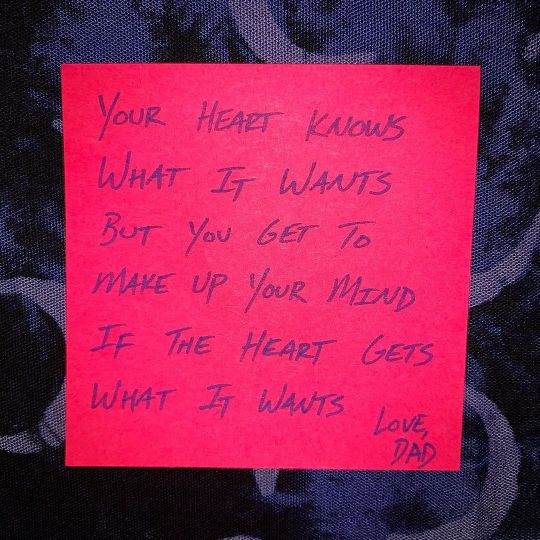 YOUR HEART KNOWS
WHAT IT WANTS
BUT YOU GET TO
MAKE UP YOUR MIND
IF THE HEART GETS
WHAT IT WANTS
LOVE,
DAD